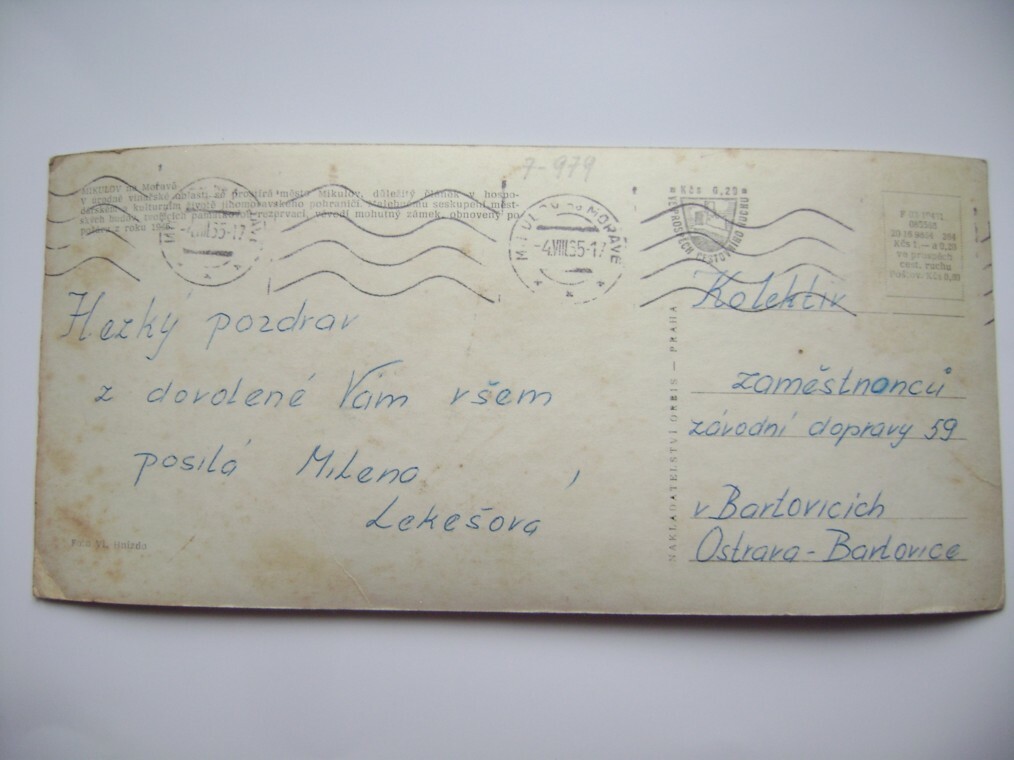 7-979
MIKULOV na Moravě
V úrodné vinařské oblasti se prostírá město Mikulov, důležitý článek v hospo-
dářském a kulturním životě jihomoravského pohraničí. Malebnému seskupení měst-
ských budov, tvořících památkovou rezervaci, vévodí mohutný zámek, obnovený po
požáru z roku
MIKULOV na MORAVĚ
-4.VIII.65-17
Kčs 0,20
VE PROSPĚCH CESTOVNÍHO RUCHU
Kčs 1,— a 0,20
ve prospěch
cest. ruchu
Hezký pozdrav
z dovolené Vám všem
posílá Milena
Lekešova
Foto Vl. Hnízdo
NAKLADATELSTVÍ ORBIS — PRAHA
Kolektiv
zaměstnanců
závodní dopravy 59
v Bartovicích
Ostrava-Bartovice